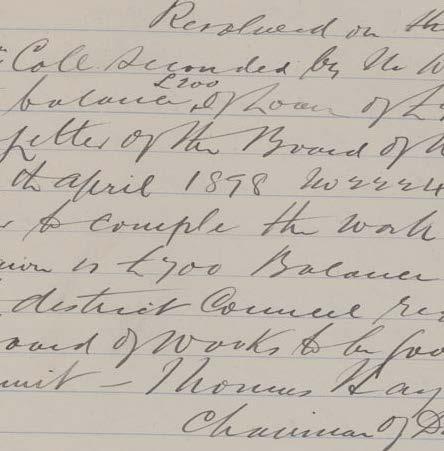 Resolved on the
Coll seconded by Mr W
£200
balance, of Loan of £
letter of the Board of W
th april 1898 No 22224
to comple the work
is £700 Balance
district Council re
oard of Works to be goo
mit — Thomas Hay
Chairman of D